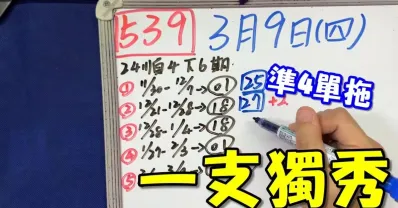 539 3月9日(四)
24順4下6期
① 11/30-12/7→01 25
準4單拖
② 12/21-12/28→18 27 +2
③ 12/28-1/4→18
④ 1/27-2/3→01
⑤
一支獨秀